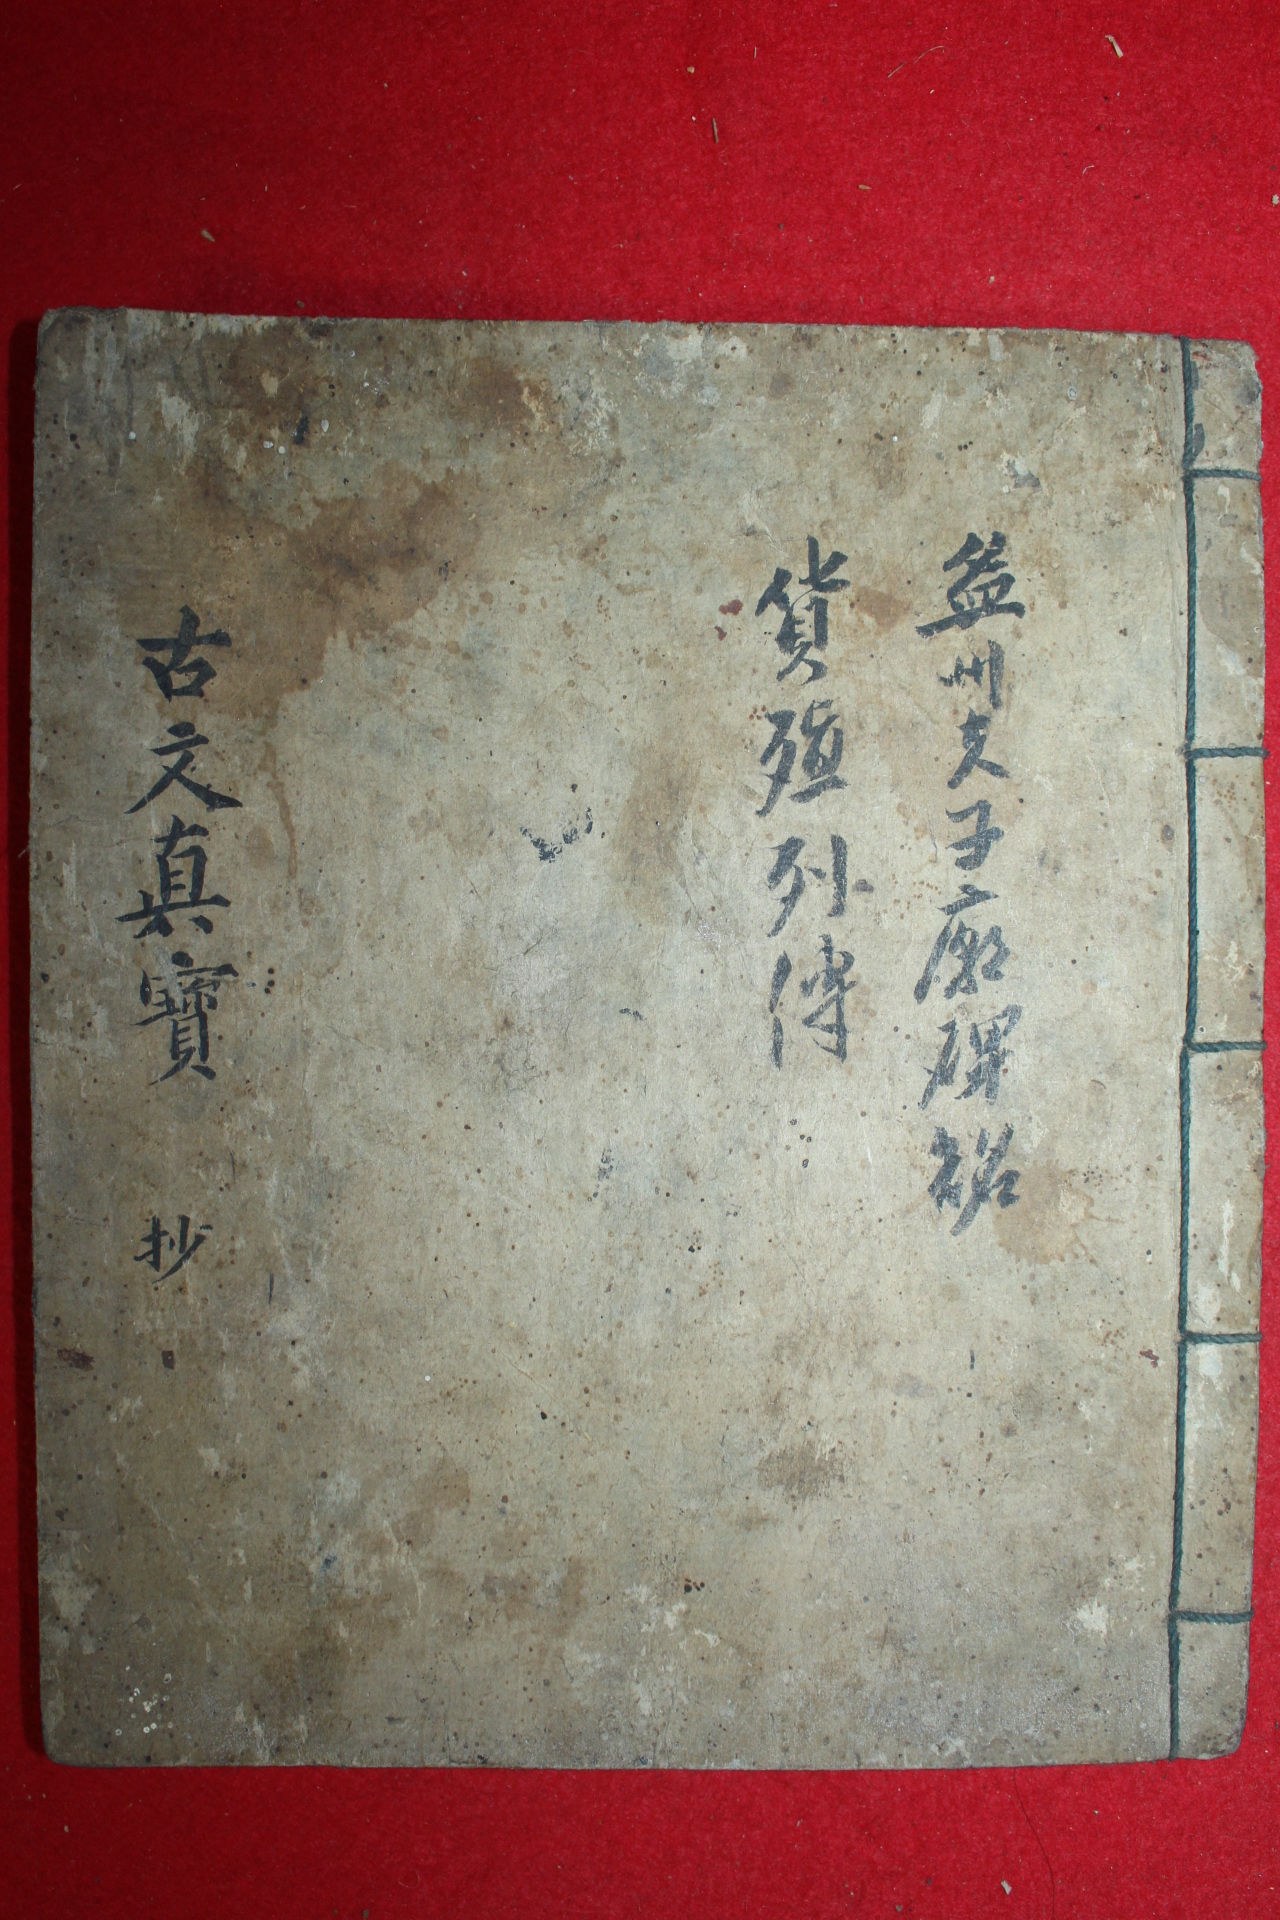 益州夫子廟碑銘
貨殖列傳
古文眞寶 抄